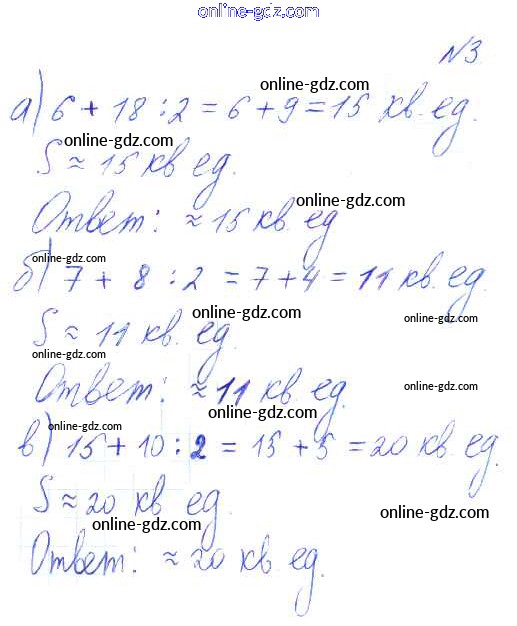 online-gdz.com
№3
online-gdz.com
а) 6 + 18 : 2 = 6 + 9 = 15 кв. ед.
online-gdz.com
S ≈ 15 кв ед.
online-gdz.com
Ответ: ≈ 15 кв. ед
online-gdz.com
б) 7 + 8 : 2 = 7 + 4 = 11 кв. ед.
online-gdz.com
online-gdz.com
S ≈ 11 кв. ед.
online-gdz.com
Ответ: ≈ 11 кв. ед.
online-gdz.com
online-gdz.com
online-gdz.com
в) 15 + 10 : 2 = 15 + 5 = 20 кв. ед.
S ≈ 20 кв ед.
online-gdz.com
online-gdz.com
Ответ: ≈ 20 кв. ед.